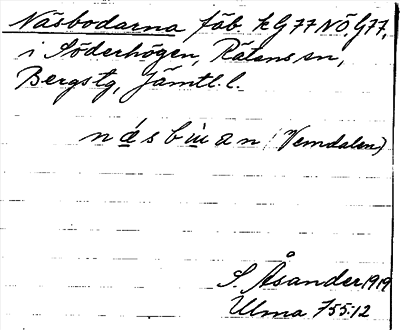 Näsbodarna fäb. k G77 NÖ, G77,
i Söderhögen, Rätans sn,
Bergs tg, Jämtl. l.
(Vemdalen)
S. Åsander 1919
Ulma 755:12